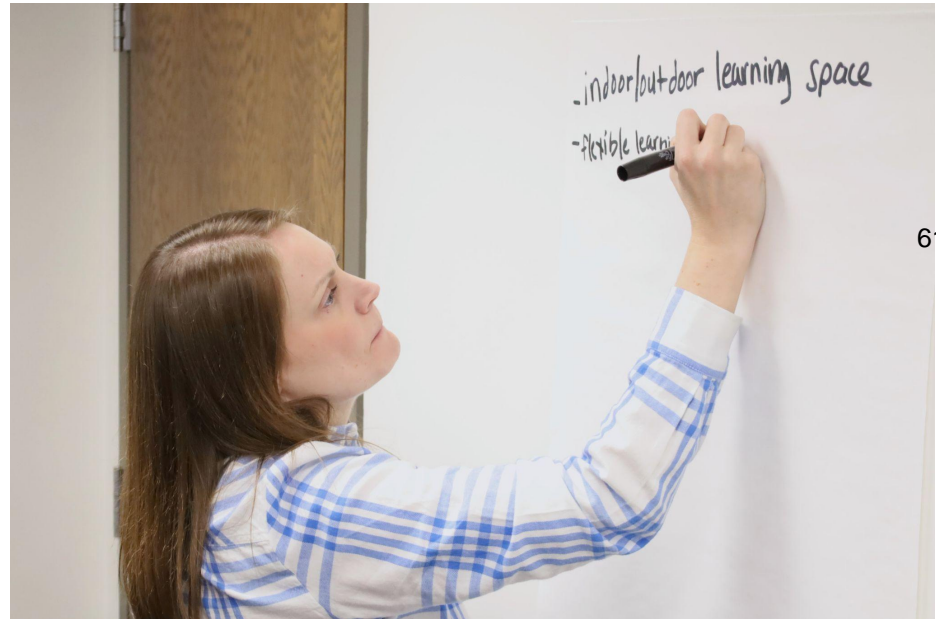 -indoor/outdoor learning space
-flexible learni
61